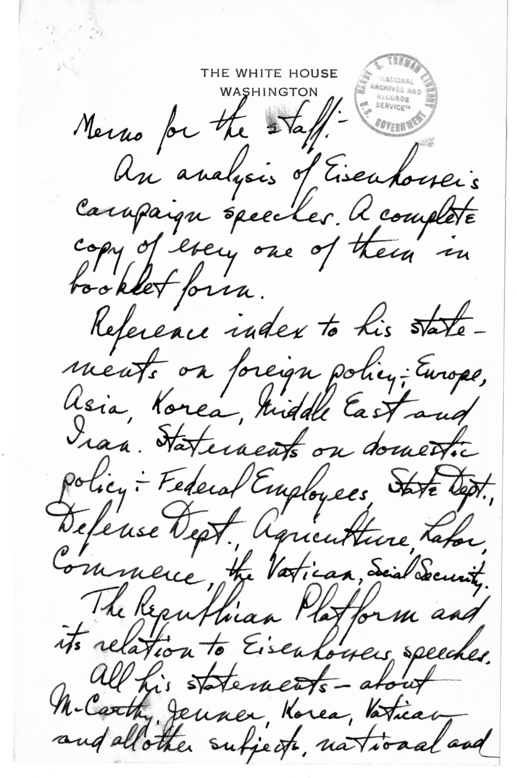 THE WHITE HOUSE
WASHINGTON
HARRY S. TRUMAN LIBRARY
"NATIONAL
ARCHIVES AND
RECORDS
SERVICE"
U.S. GOVERNMENT
Memo for the staff:-
An analysis of Eisenhower's
campaign speeches. A complete
copy of every one of them in
booklet form.
Reference index to his state-
ments on foreign policy;- Europe,
Asia, Korea, Middle East and
Iran. Statements on domestic
policy:- Federal Employees, State Dept.,
Defense Dept., Agriculture, Labor,
Commerce, the Vatican, Social Security.
The Republican Platform and
its relation to Eisenhowers speeches.
All his statements - about
McCarthy, Jenner, Korea, Vatican
and all other subjects, national and